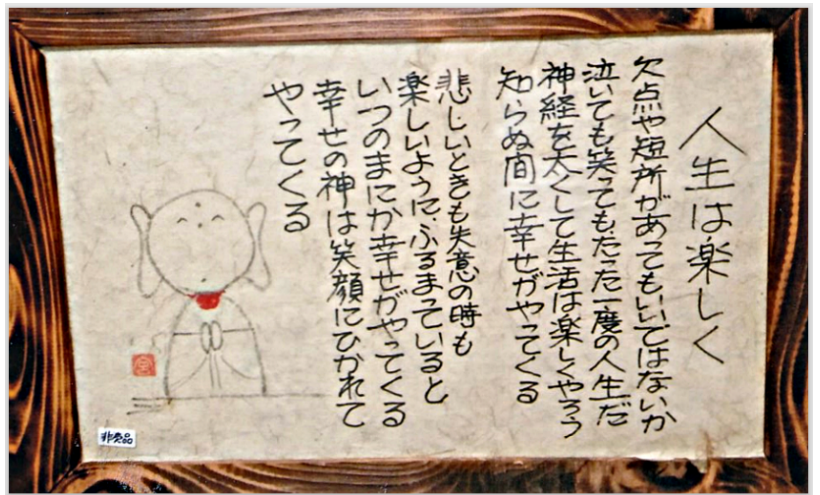 人生は楽しく
欠点や短所があってもいいではないか
泣いても笑ってもたった一度の人生だ
神経を太くして生活は楽しくやろう
知らぬ間に幸せがやってくる
悲しいときも失意の時も
楽しいように、ふるまっていると
いつのまにか幸せがやってくる
幸せの神は笑顔にひかれて
やってくる
非売品